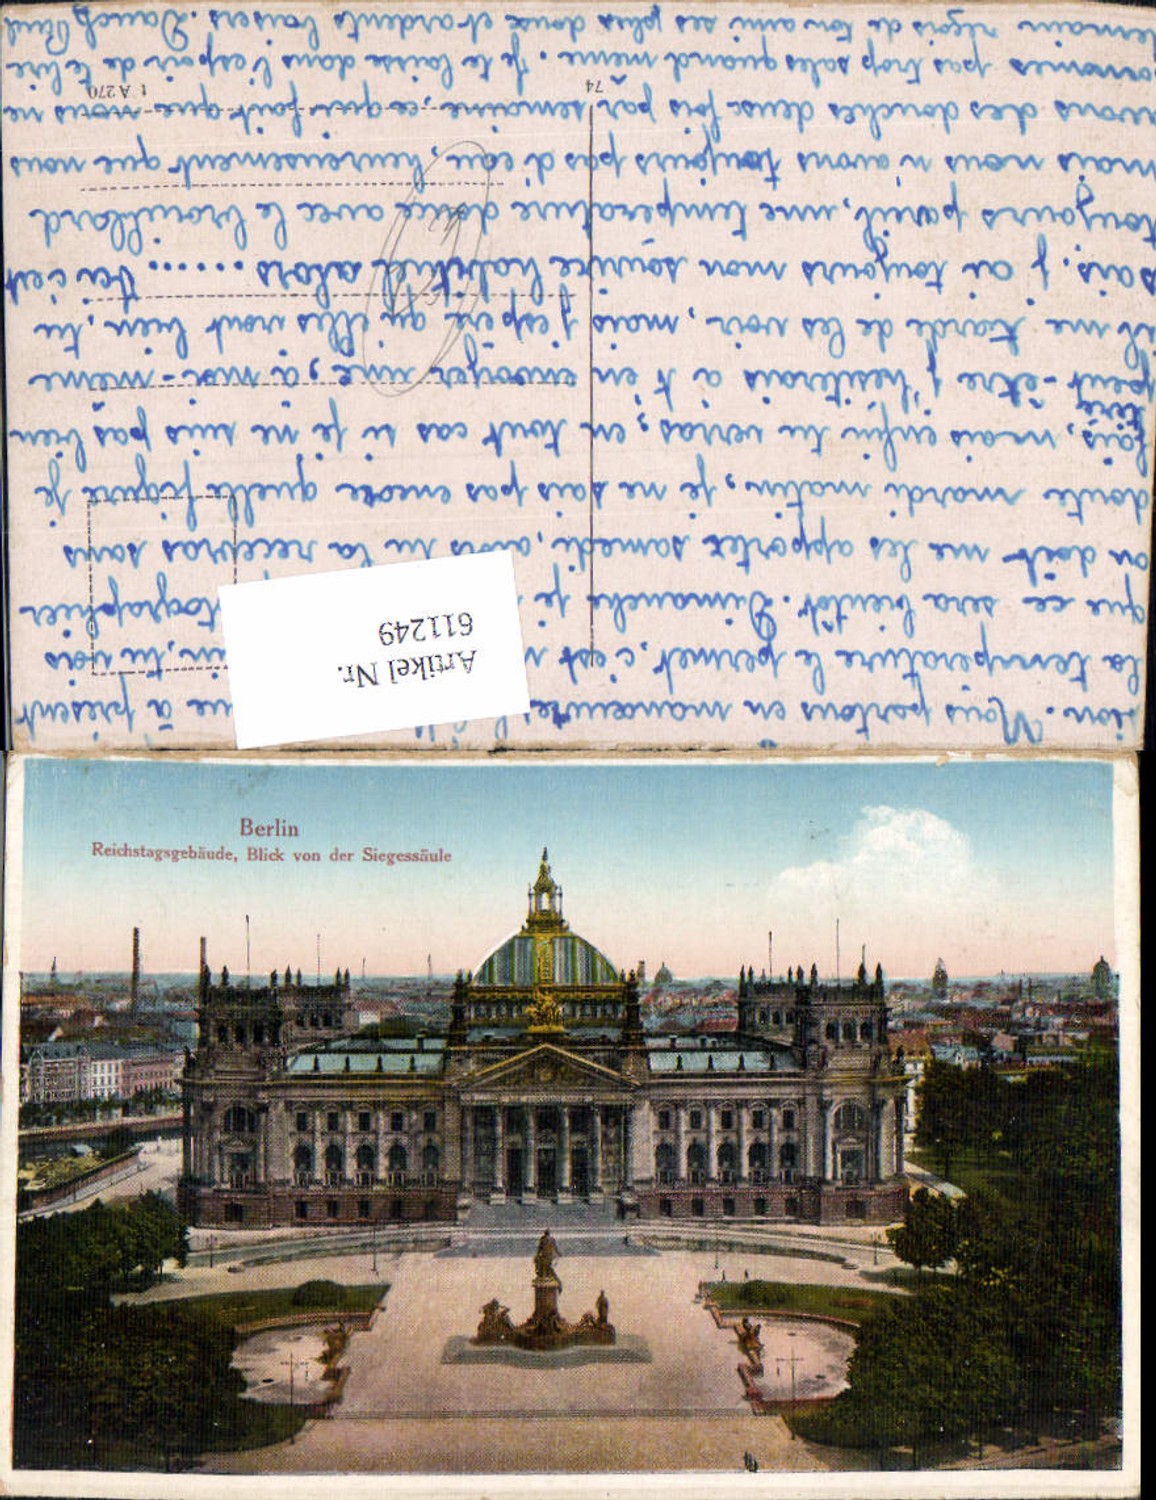 sion. Nous partons en manoeuvre à présent
la temperature le permet, c'est tu vois
que ce sera bientôt. Dimanche je tographier
on doit me les apporter samedi, alors tu la recevras sans
doute mardi matin, je ne sais pas encore quelle figure je
fais, mais enfin tu verras, en tout cas si je ne suis pas bien
peut-être j'hesiterais à t'en envoyer une, à moi-même
tiré
il me tarde de les voir, mais j'espère qu'elles vont bien, tu
sais. j'ai toujours mon sourire habituel alors ...... Ici c'est
toujours pareil, une temperature douce avec le brouillard
mais nous n'avons toujours pas d'eau, heureusement que nous
avons des douches deux fois par semaine, ce qui fait que nous ne
sommes pas trop sales quand meme. Je te laisse dans l'espoir de te lire
demain reçois de ton ami ses plus doux et ardents baisers.
74
t A 270
Artikel Nr.
611249
Berlin
Reichstagsgebäude, Blick von der Siegessäule